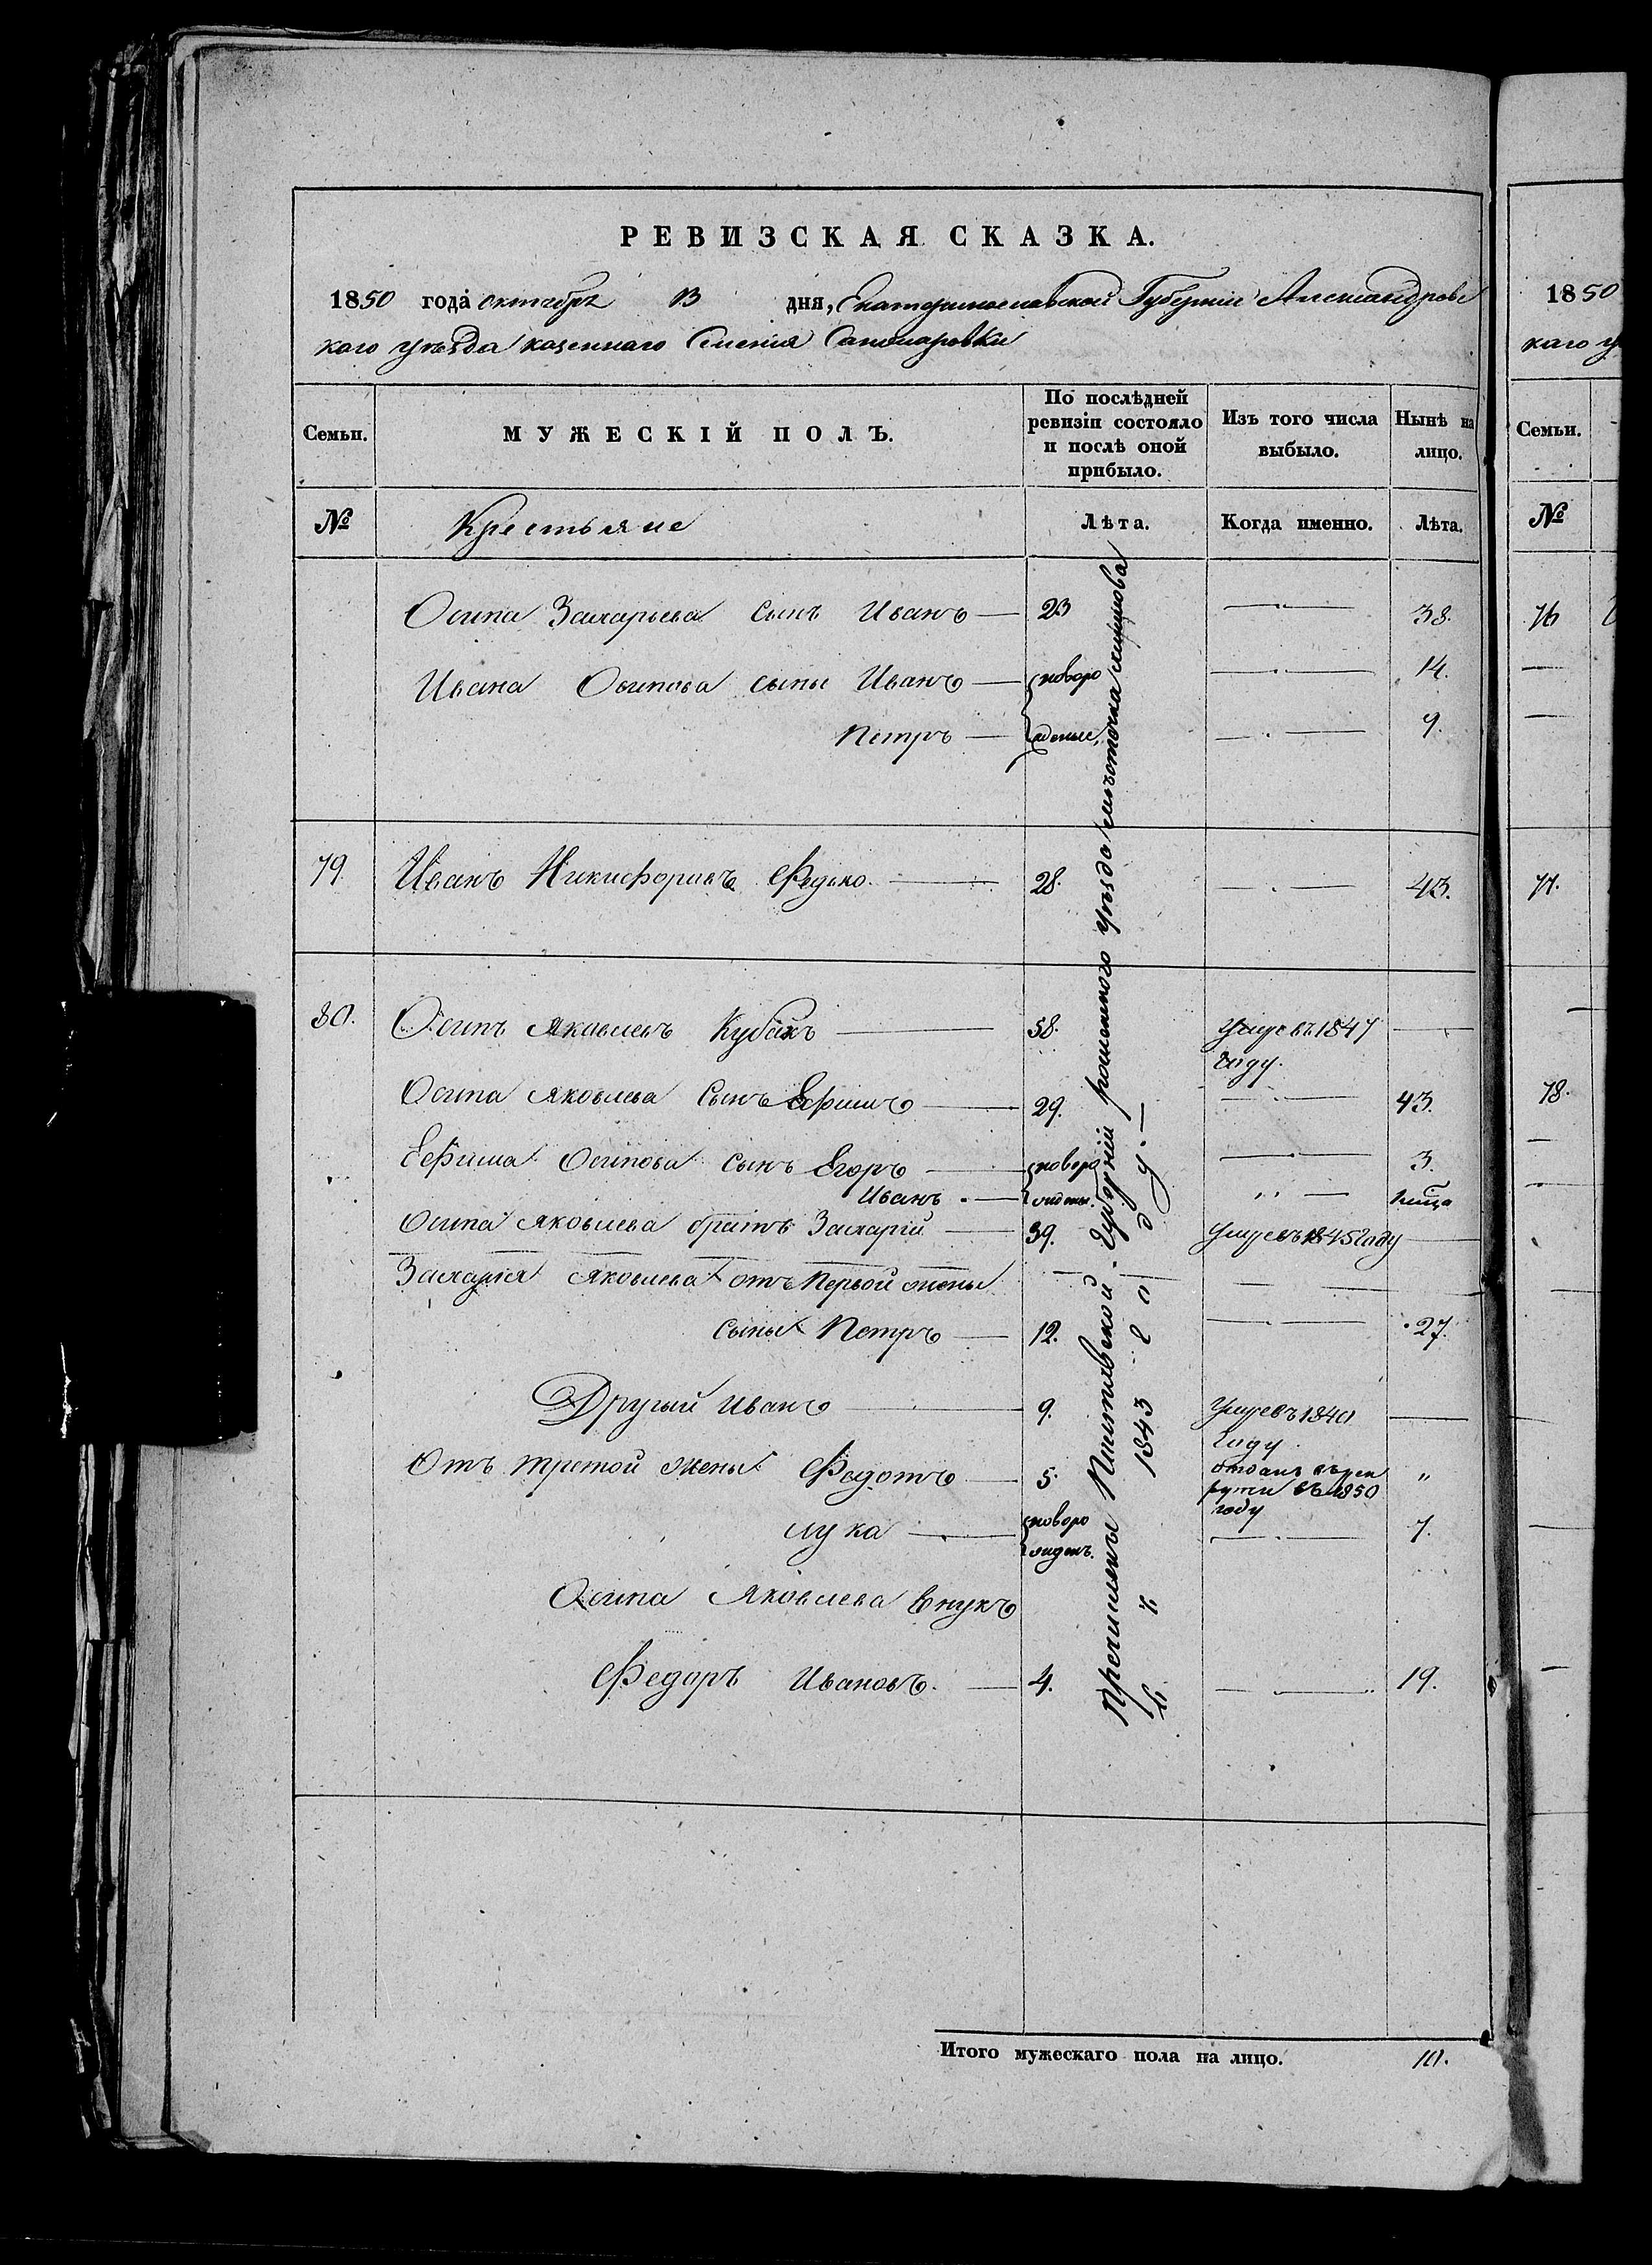 РЕВИЗСКАЯ СКАЗКА.
1850 года октября 13 дня, Екатеринославской Губерніи Александровс
кого уѣзда казеннаго Селенія Санжаровки
Семьи.
МУЖЕСКІЙ ПОЛЪ.
По послѣдней
ревизіи состояло
и послѣ оной
прибыло.
Изъ того числа
выбыло.
Нынѣ на
лицо.
№ Крестьяне Лѣта. Когда именно. Лѣта.
Осипа Захарьева сынъ Иванъ 23 38.
Ивана Осипова сыны Иванъ новоро 14.
Петръ жденые 9.
79 Иванъ Никифоривъ Федько. 28. 43.
80. Осипъ Яковлевъ Кубахъ 58. Умре въ 1847
году.
Осипа Яковлева Сынъ Ефимъ 29. 43.
Ефима Осипова сынъ Егоръ новоро 3.
Иванъ жидены.
Осипа Яковлева братъ Захарій 39. Умре въ 1845 году
Захарія Яковлева отъ Первой жены
сыны Петръ 12. 27.
Другый Иванъ 9. Умре въ 1840
году.
Отъ третой жены Федотъ 5. отданъ въ рек
руты въ 1850
году
Лука новоро 7.
жиденъ.
Осипа Яковлева внукъ
Федоръ Ивановъ. 4. 19.
Причислены Полтавской Губерніи роменского уѣзда
въ 1843 году.
Итого мужескаго пола на лицо. 10.
1850
каго у
Семьи.
№
76
77.
78.